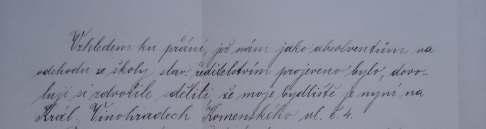 Vzhledem ku přání, jež nám jako absolventům na
odchodu ze školy slav. ředitelstvím projeveno bylo, dovo-
luji si zdvořile sděliti, že moje bydliště je nyní na
Král. Vinohradech Komenského ul. č. 4.